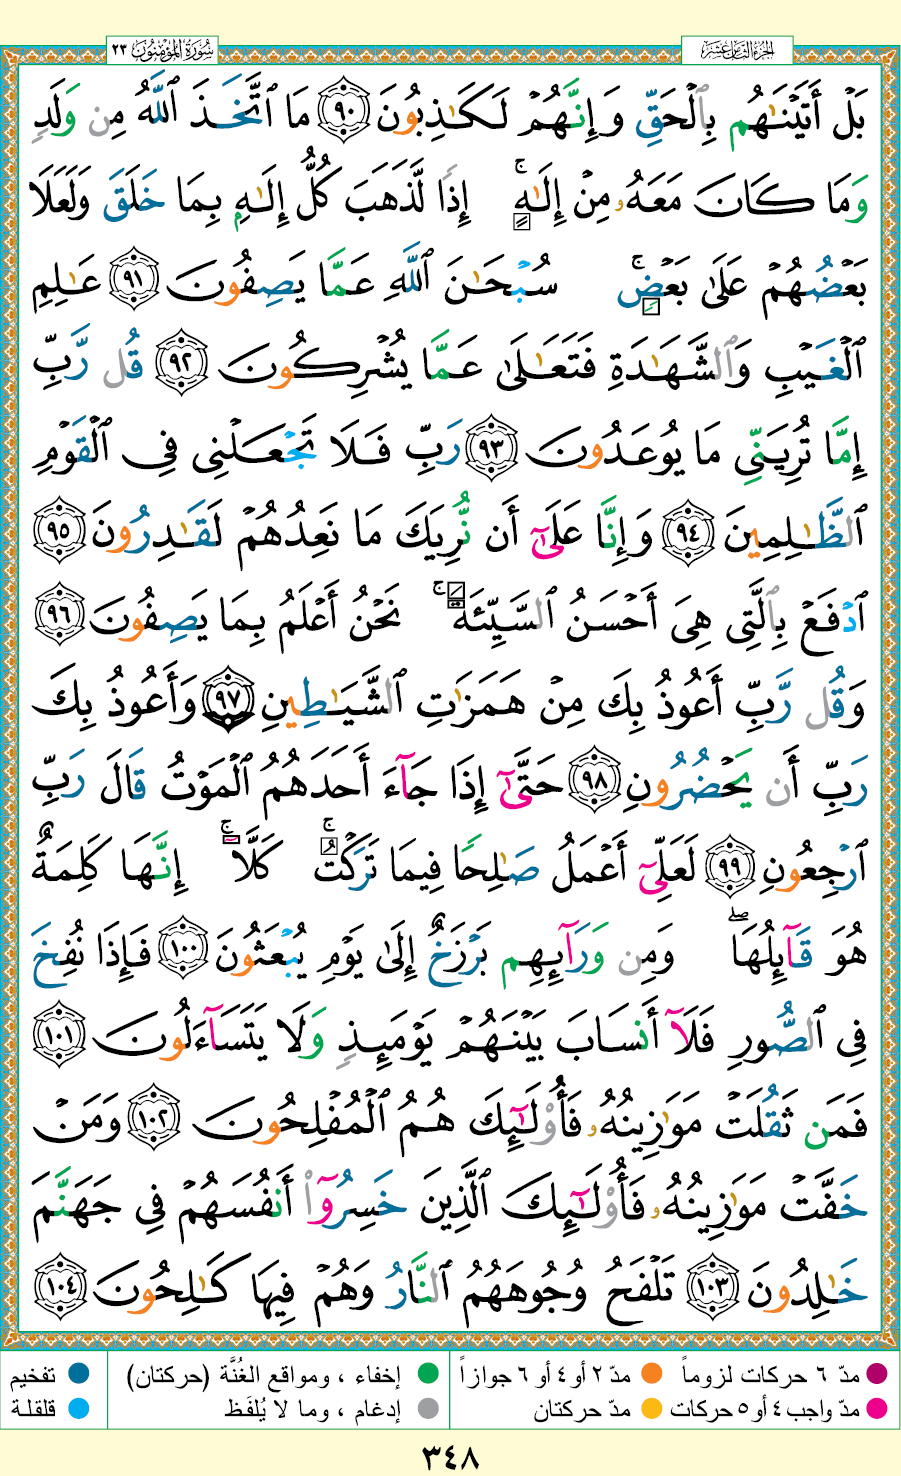 سُورَةُ المُؤْمِنُونَ ٢٣
الجُزْءُ الثَّامِنَ عَشَرَ
بَلْ أَتَيْنَٰهُم بِٱلْحَقِّ وَإِنَّهُمْ لَكَٰذِبُونَ ٩٠ مَا ٱتَّخَذَ ٱللَّهُ مِن وَلَدٍ
وَمَا كَانَ مَعَهُۥ مِنْ إِلَٰهٍ ۚ إِذًا لَّذَهَبَ كُلُّ إِلَٰهٍۭ بِمَا خَلَقَ وَلَعَلَا
بَعْضُهُمْ عَلَىٰ بَعْضٍ ۚ سُبْحَٰنَ ٱللَّهِ عَمَّا يَصِفُونَ ٩١ عَٰلِمِ
ٱلْغَيْبِ وَٱلشَّهَٰدَةِ فَتَعَٰلَىٰ عَمَّا يُشْرِكُونَ ٩٢ قُل رَّبِّ
إِمَّا تُرِيَنِّي مَا يُوعَدُونَ ٩٣ رَبِّ فَلَا تَجْعَلْنِي فِي ٱلْقَوْمِ
ٱلظَّٰلِمِينَ ٩٤ وَإِنَّا عَلَىٰٓ أَن نُّرِيَكَ مَا نَعِدُهُمْ لَقَٰدِرُونَ ٩٥
ٱدْفَعْ بِٱلَّتِي هِيَ أَحْسَنُ ٱلسَّيِّئَةَ ۚ نَحْنُ أَعْلَمُ بِمَا يَصِفُونَ ٩٦
وَقُل رَّبِّ أَعُوذُ بِكَ مِنْ هَمَزَٰتِ ٱلشَّيَٰطِينِ ٩٧ وَأَعُوذُ بِكَ
رَبِّ أَن يَحْضُرُونِ ٩٨ حَتَّىٰٓ إِذَا جَآءَ أَحَدَهُمُ ٱلْمَوْتُ قَالَ رَبِّ
ٱرْجِعُونِ ٩٩ لَعَلِّيٓ أَعْمَلُ صَٰلِحًا فِيمَا تَرَكْتُ ۚ كَلَّآ ۚ إِنَّهَا كَلِمَةٌ
هُوَ قَآئِلُهَا ۖ وَمِن وَرَآئِهِم بَرْزَخٌ إِلَىٰ يَوْمِ يُبْعَثُونَ ١٠٠ فَإِذَا نُفِخَ
فِي ٱلصُّورِ فَلَآ أَنسَابَ بَيْنَهُمْ يَوْمَئِذٍ وَلَا يَتَسَآءَلُونَ ١٠١
فَمَن ثَقُلَتْ مَوَٰزِينُهُۥ فَأُوْلَٰٓئِكَ هُمُ ٱلْمُفْلِحُونَ ١٠٢ وَمَنْ
خَفَّتْ مَوَٰزِينُهُۥ فَأُوْلَٰٓئِكَ ٱلَّذِينَ خَسِرُوٓاْ أَنفُسَهُمْ فِي جَهَنَّمَ
خَٰلِدُونَ ١٠٣ تَلْفَحُ وُجُوهَهُمُ ٱلنَّارُ وَهُمْ فِيهَا كَٰلِحُونَ ١٠٤
مدّ ٦ حركات لزوماً مدّ ٢ أو ٤ أو ٦ جوازاً إخفاء ، ومواقع الغُنَّة (حركتان) تفخيم
مدّ واجب ٤ أو ٥ حركات مدّ حركتان إدغام ، وما لا يُلفَظ قلقلة
٣٤٨